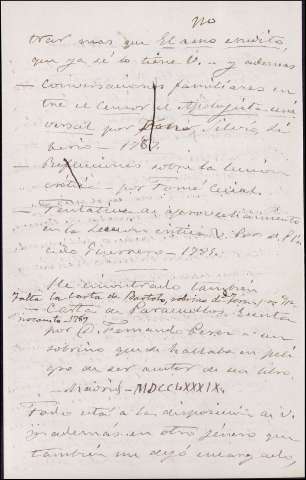 no
trar mas que El asno erudito,
que ya sé lo tiene V. - y ademas
— Conversaciones familiares en
tre el Censor el Apologista uni
versal por Silvio Li
berio - 1787.
— Reflexiones sobre la Leccion
critica - por Tomé Cecial.
— Tentativa de aprovechamiento
en la Leccion critica &. Por D. Pla
cido Guerrero - 1785.
He encontrado tambien
Falta la carta de Bartolo, sobrino de
— Carta de Paracuellos. Escrita
por D. Fernando Perez - un
sobrino que se hallaba en peli
gro de ser autor de un libro.
Madrid - MDCCLXXXIX.
Todo está a la disposicion de V.
ademas en otro género que
tambien me dejó encargado,